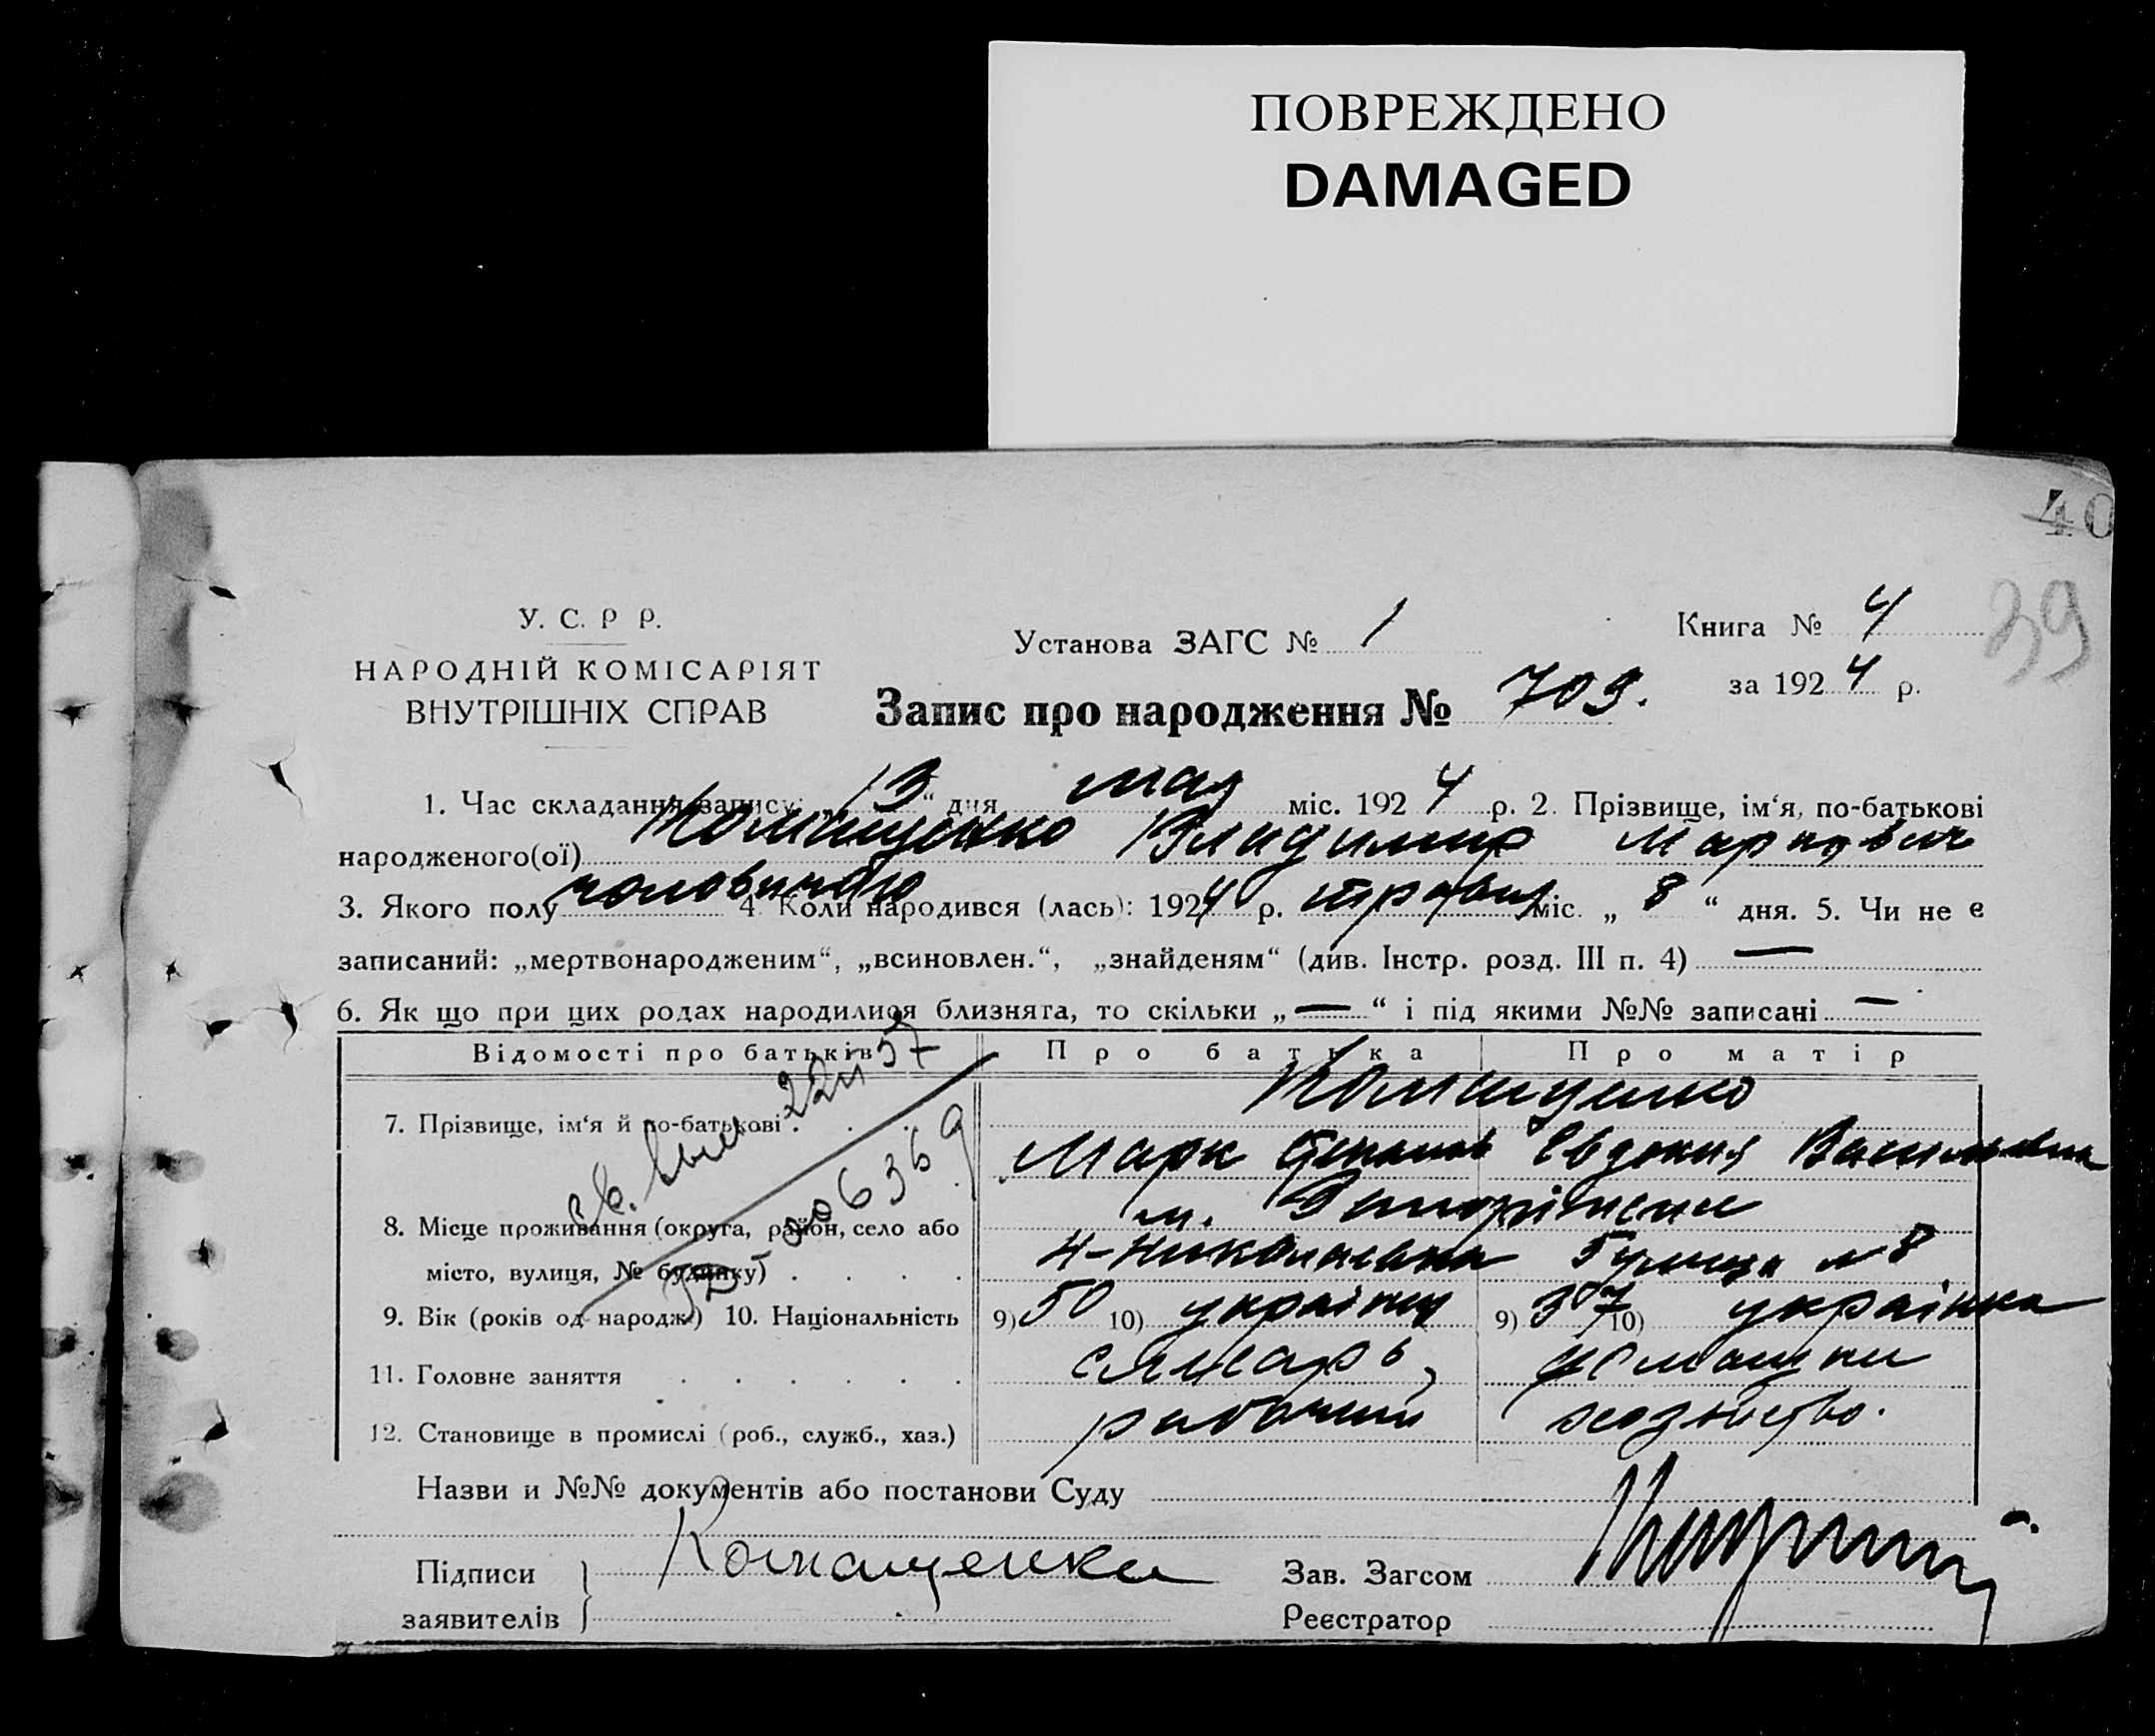 ПОВРЕЖДЕНО
DAMAGED
40
39
У. С. Р Р.
НАРОДНІЙ КОМІСАРІЯТ
ВНУТРІШНІХ СПРАВ
Установа ЗАГС № 1
Книга № 4
за 1924 р.
Запис про народження № 709.
1. Час складання запису: „13“ дня мая міс. 1924 р. 2. Прізвище, ім‘я, по-батькові
народженого(ої) Владимир Маркович
3. Якого полу 4. Коли народився (лась): 1924 р. травня міс. „ 8 “ дня. 5. Чи не є
записаний: „мертвонародженим“, „всиновлен.“, „знайденям“ (див. Інстр. розд. III п. 4) —
6. Як що при цих родах народилися близнята, то скільки „—“ і під якими №№ записані —
Відомості про батьків
Про батька
Про матір
7. Прізвище, ім‘я й по-батькові
Марк Степанов Евдокия Васильевна
8. Місце проживання (округа, район, село або
м. Запоріжжя
місто, вулиця, № будинку)
Н-Николаевка 5 улица № 8
9. Вік (років од народж.) 10. Національність
9) 50 10) українец
9) 37 10) українка
11. Головне заняття
слюсарь,
домашни
12. Становище в промислі (роб., служб., хаз.)
рабочий
хозяйство.
Назви и №№ документів або постанови Суду
Підписи
заявителів
Зав. Загсом
Реєстратор